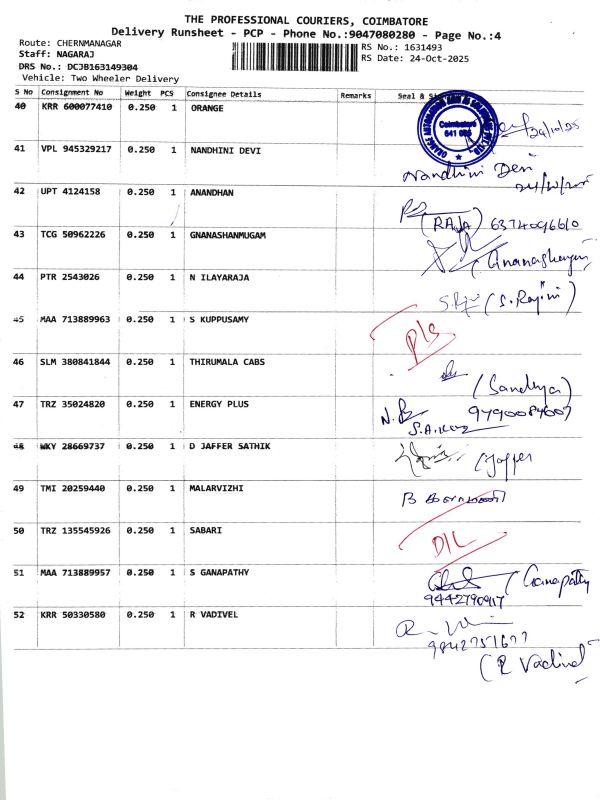 THE PROFESSIONAL COURIERS, COIMBATORE
Delivery Runsheet - PCP - Phone No.:9047080280 - Page No.:4
Route: CHERNMANAGAR
Staff: NAGARAJ
DRS No.: DCJB163149304
Vehicle: Two Wheeler Delivery
RS No.: 1631493
RS Date: 24-Oct-2025
S No Consignment No Weight PCS Consignee Details Remarks Seal &
40 KRR 600077410 0.250 1 ORANGE
Coimbatore
24/10/25
41 VPL 945329217 0.250 1 NANDHINI DEVI
Nandhini Devi
42 UPT 4124158 0.250 1 ANANDHAN
(RAJA) 6374096610
43 TCG 50962226 0.250 1 GNANASHANMUGAM
44 PTR 2543026 0.250 1 N ILAYARAJA
(S. Rajini)
45 MAA 713889963 0.250 1 S KUPPUSAMY
D/L
46 SLM 380841844 0.250 1 THIRUMALA CABS
(Sandhya)
47 TRZ 35024820 0.250 1 ENERGY PLUS
9790084007
48 WKY 28669737 0.250 1 D JAFFER SATHIK
49 TMI 20259440 0.250 1 MALARVIZHI
50 TRZ 135545926 0.250 1 SABARI
D/L
51 MAA 713889957 0.250 1 S GANAPATHY
(Ganapathy
9442790917
52 KRR 50330580 0.250 1 R VADIVEL
9842751677
(R Vadivel